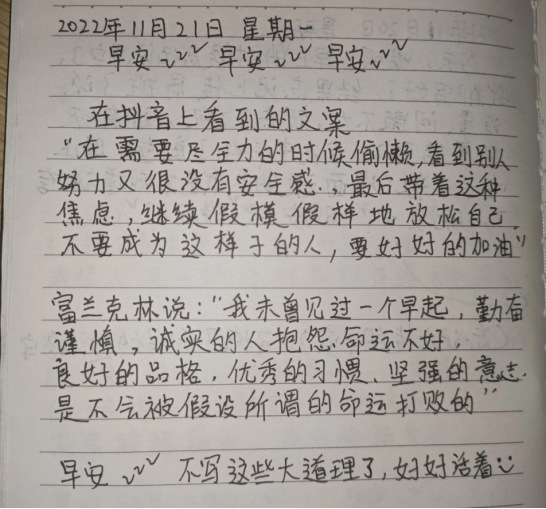 2022年11月21日 星期一
早安 ~~~ 早安 ~~~ 早安 ~~~
在抖音上看到的文案
“在需要尽全力的时候偷懒，看到别人
努力又很没有安全感.，最后带着这种
焦虑，继续假模假样地放松自己.
不要成为这样子的人，要好好的加油”
富兰克林说：“我未曾见过一个早起，勤奋
谨慎，诚实的人抱怨.命运不好.
良好的品格，优秀的习惯、坚强的意志.
是不会被假设所谓的命运打败的”
早安 ~~~ 不写这些大道理了，好好活着